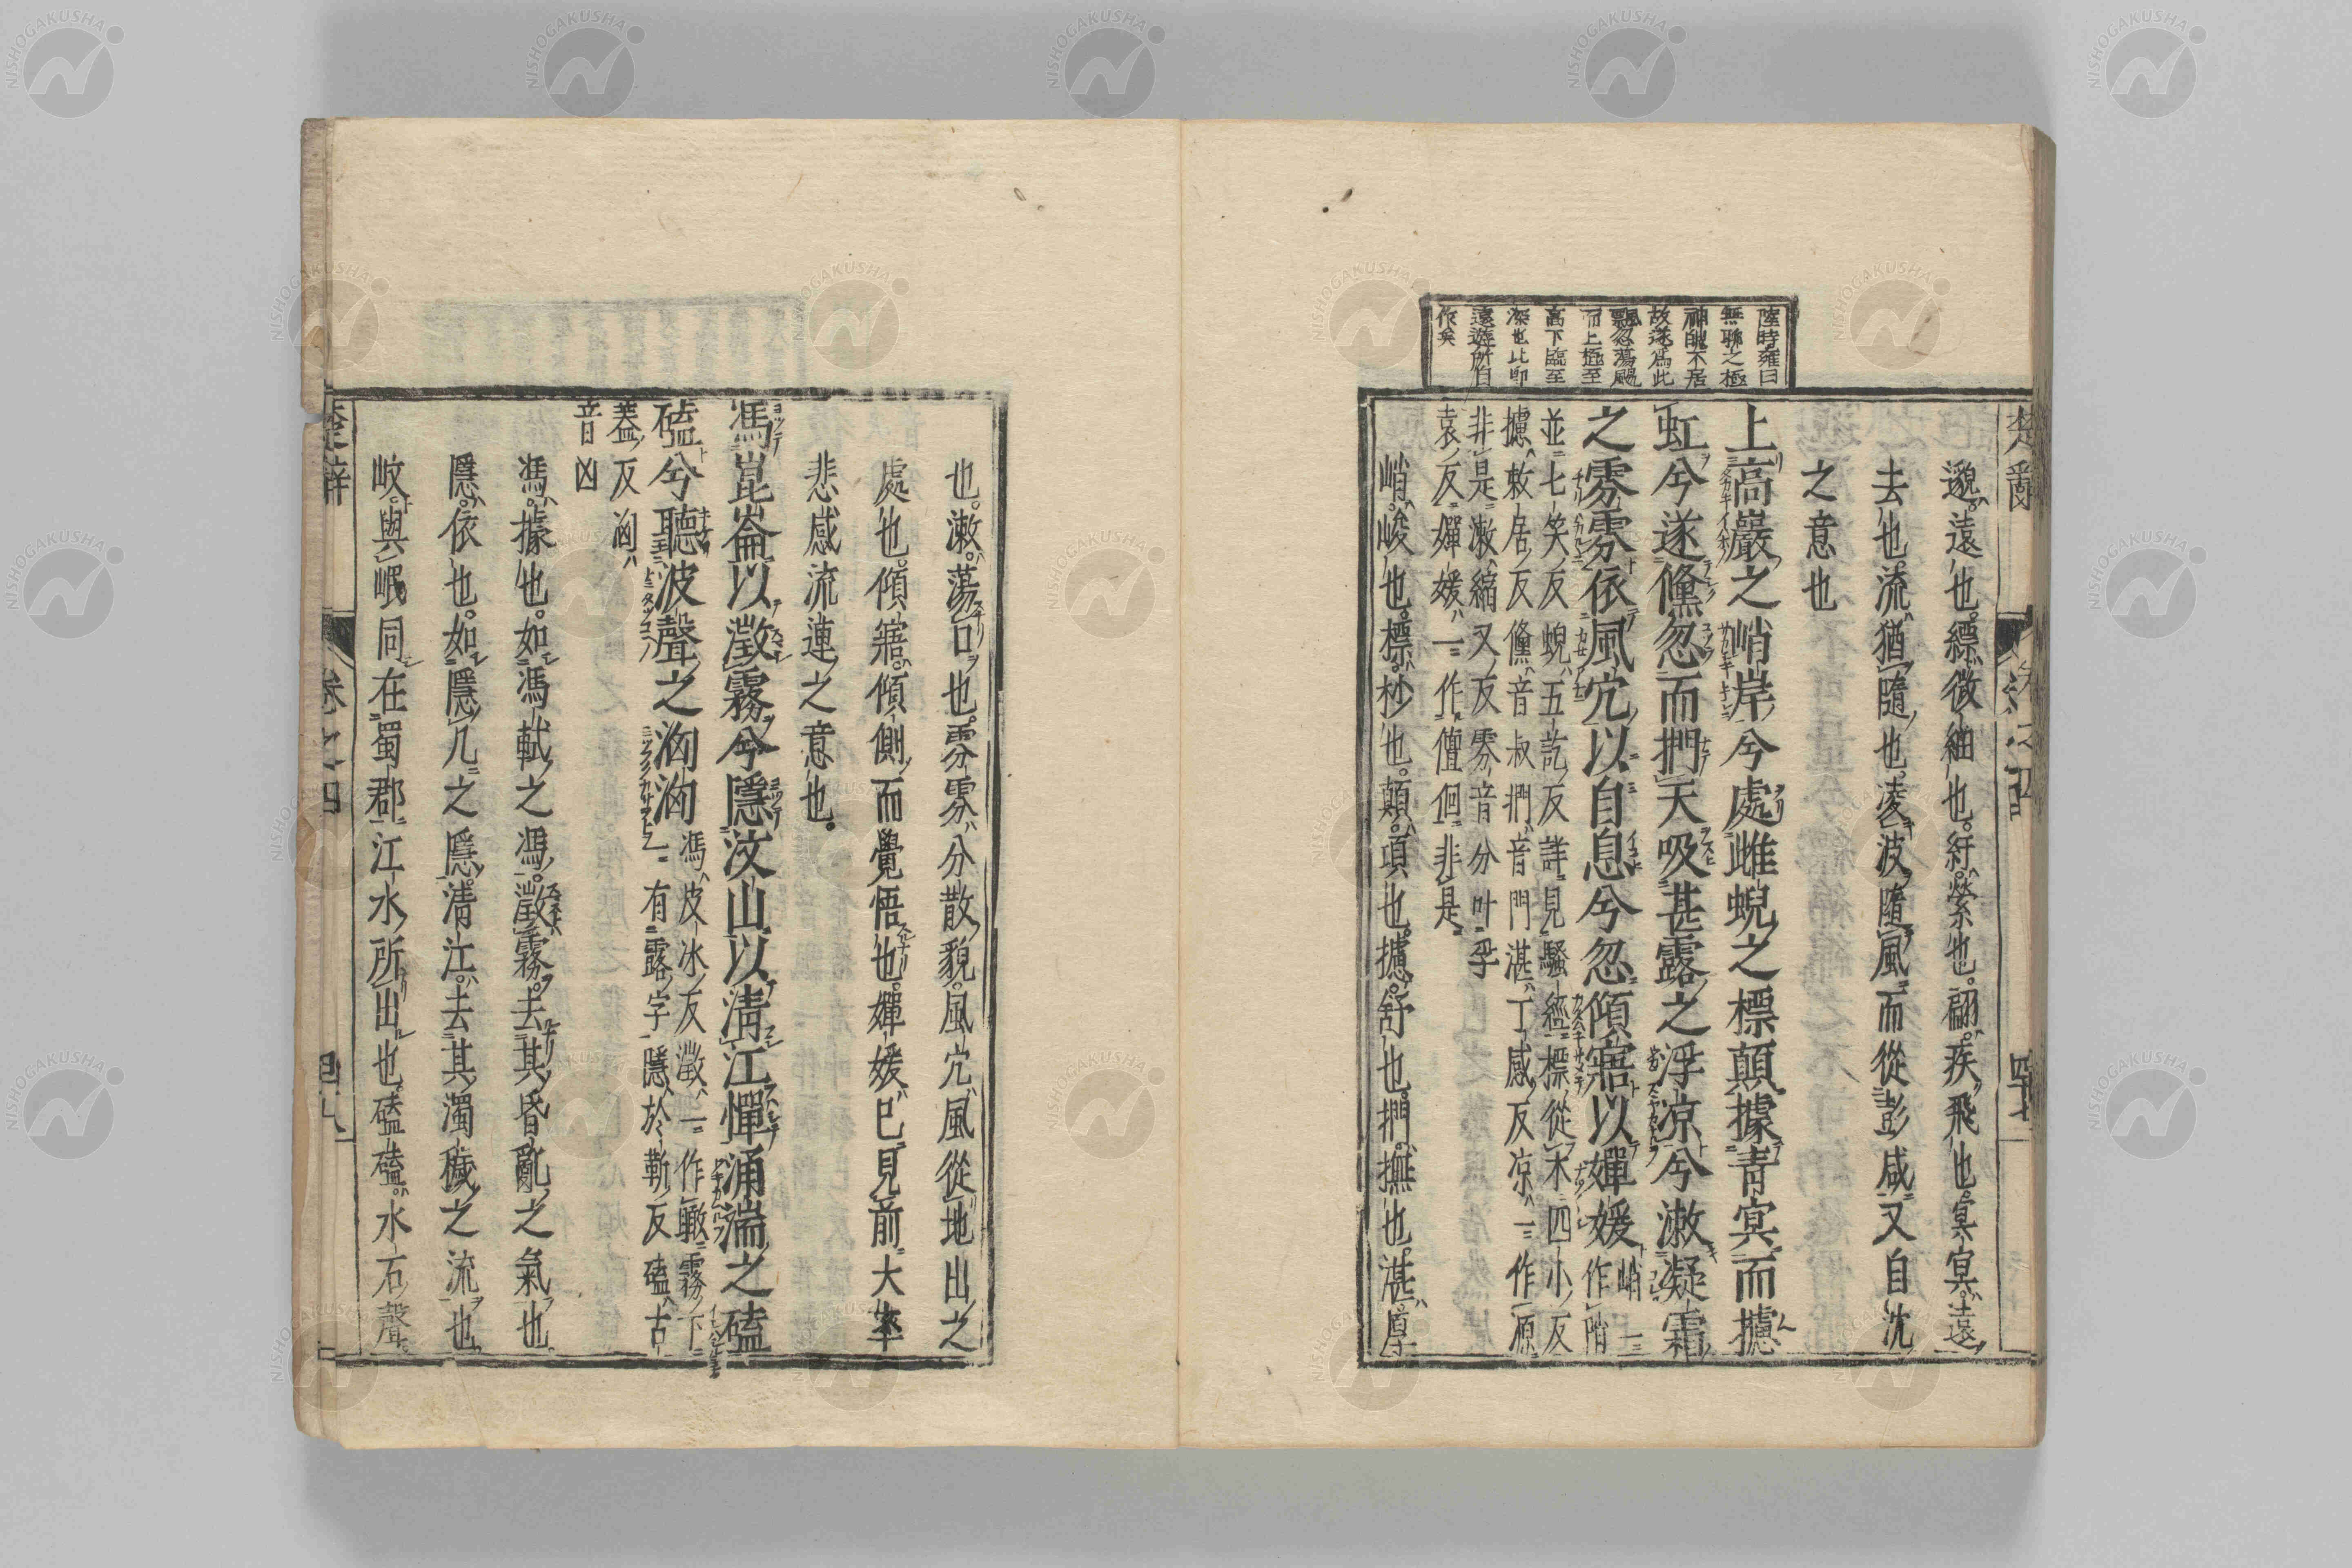 邈。遠也。縹。微細也。紆。縈也。翩。疾飛也。冥冥。遠
去也。流。猶隨也。凌波隨風。而從彭咸。又自沈
之意也
上高巖之峭岸兮處雌蜺之標顛據青冥而攄
虹兮遂儵忽而捫天吸湛露之浮凉兮漱凝霜
之雰雰依風穴以自息兮忽傾寤以嬋媛
峭一作陗
並七笑反蜺五訖反詳見騷經標從木四小反
攄敕居反儵音叔捫音門湛丁感反凉一作源
非是漱縮又反雰音分叶孚
袁反嬋媛一作儃佪非是
峭。峻也。標。杪也。顛。頂也。攄。舒也。捫。撫也。湛。厚
陸時雍曰
無聊之極
神魄不居
故遂爲此
飄忽蕩颺
而上極至
高下臨至
深也此即
遠遊所自
作矣
楚辭
卷之四
也。漱。蕩口也。雰雰。分散貌。風穴。風從地出之
處也。傾寤。傾側而覺悟也。嬋媛。已見前。大率
悲感流連之意也。
馮崑崙以澂霧兮隱汶山以清江憚涌湍之磕
磕兮聽波聲之洶洶
馮皮冰反澂一作瞰霧下
一有露字隱於靳反磕古
蓋反洶
音凶
馮。據也。如馮軾之馮。澂霧。去其昏亂之氣也。
隱。依也。如隱几之隱。清江。去其濁穢之流也。
岐。與岷同。在蜀郡。江水所出也。磕磕。水石聲。
楚辭
卷之四
四十八
NISHOGAKUSHA